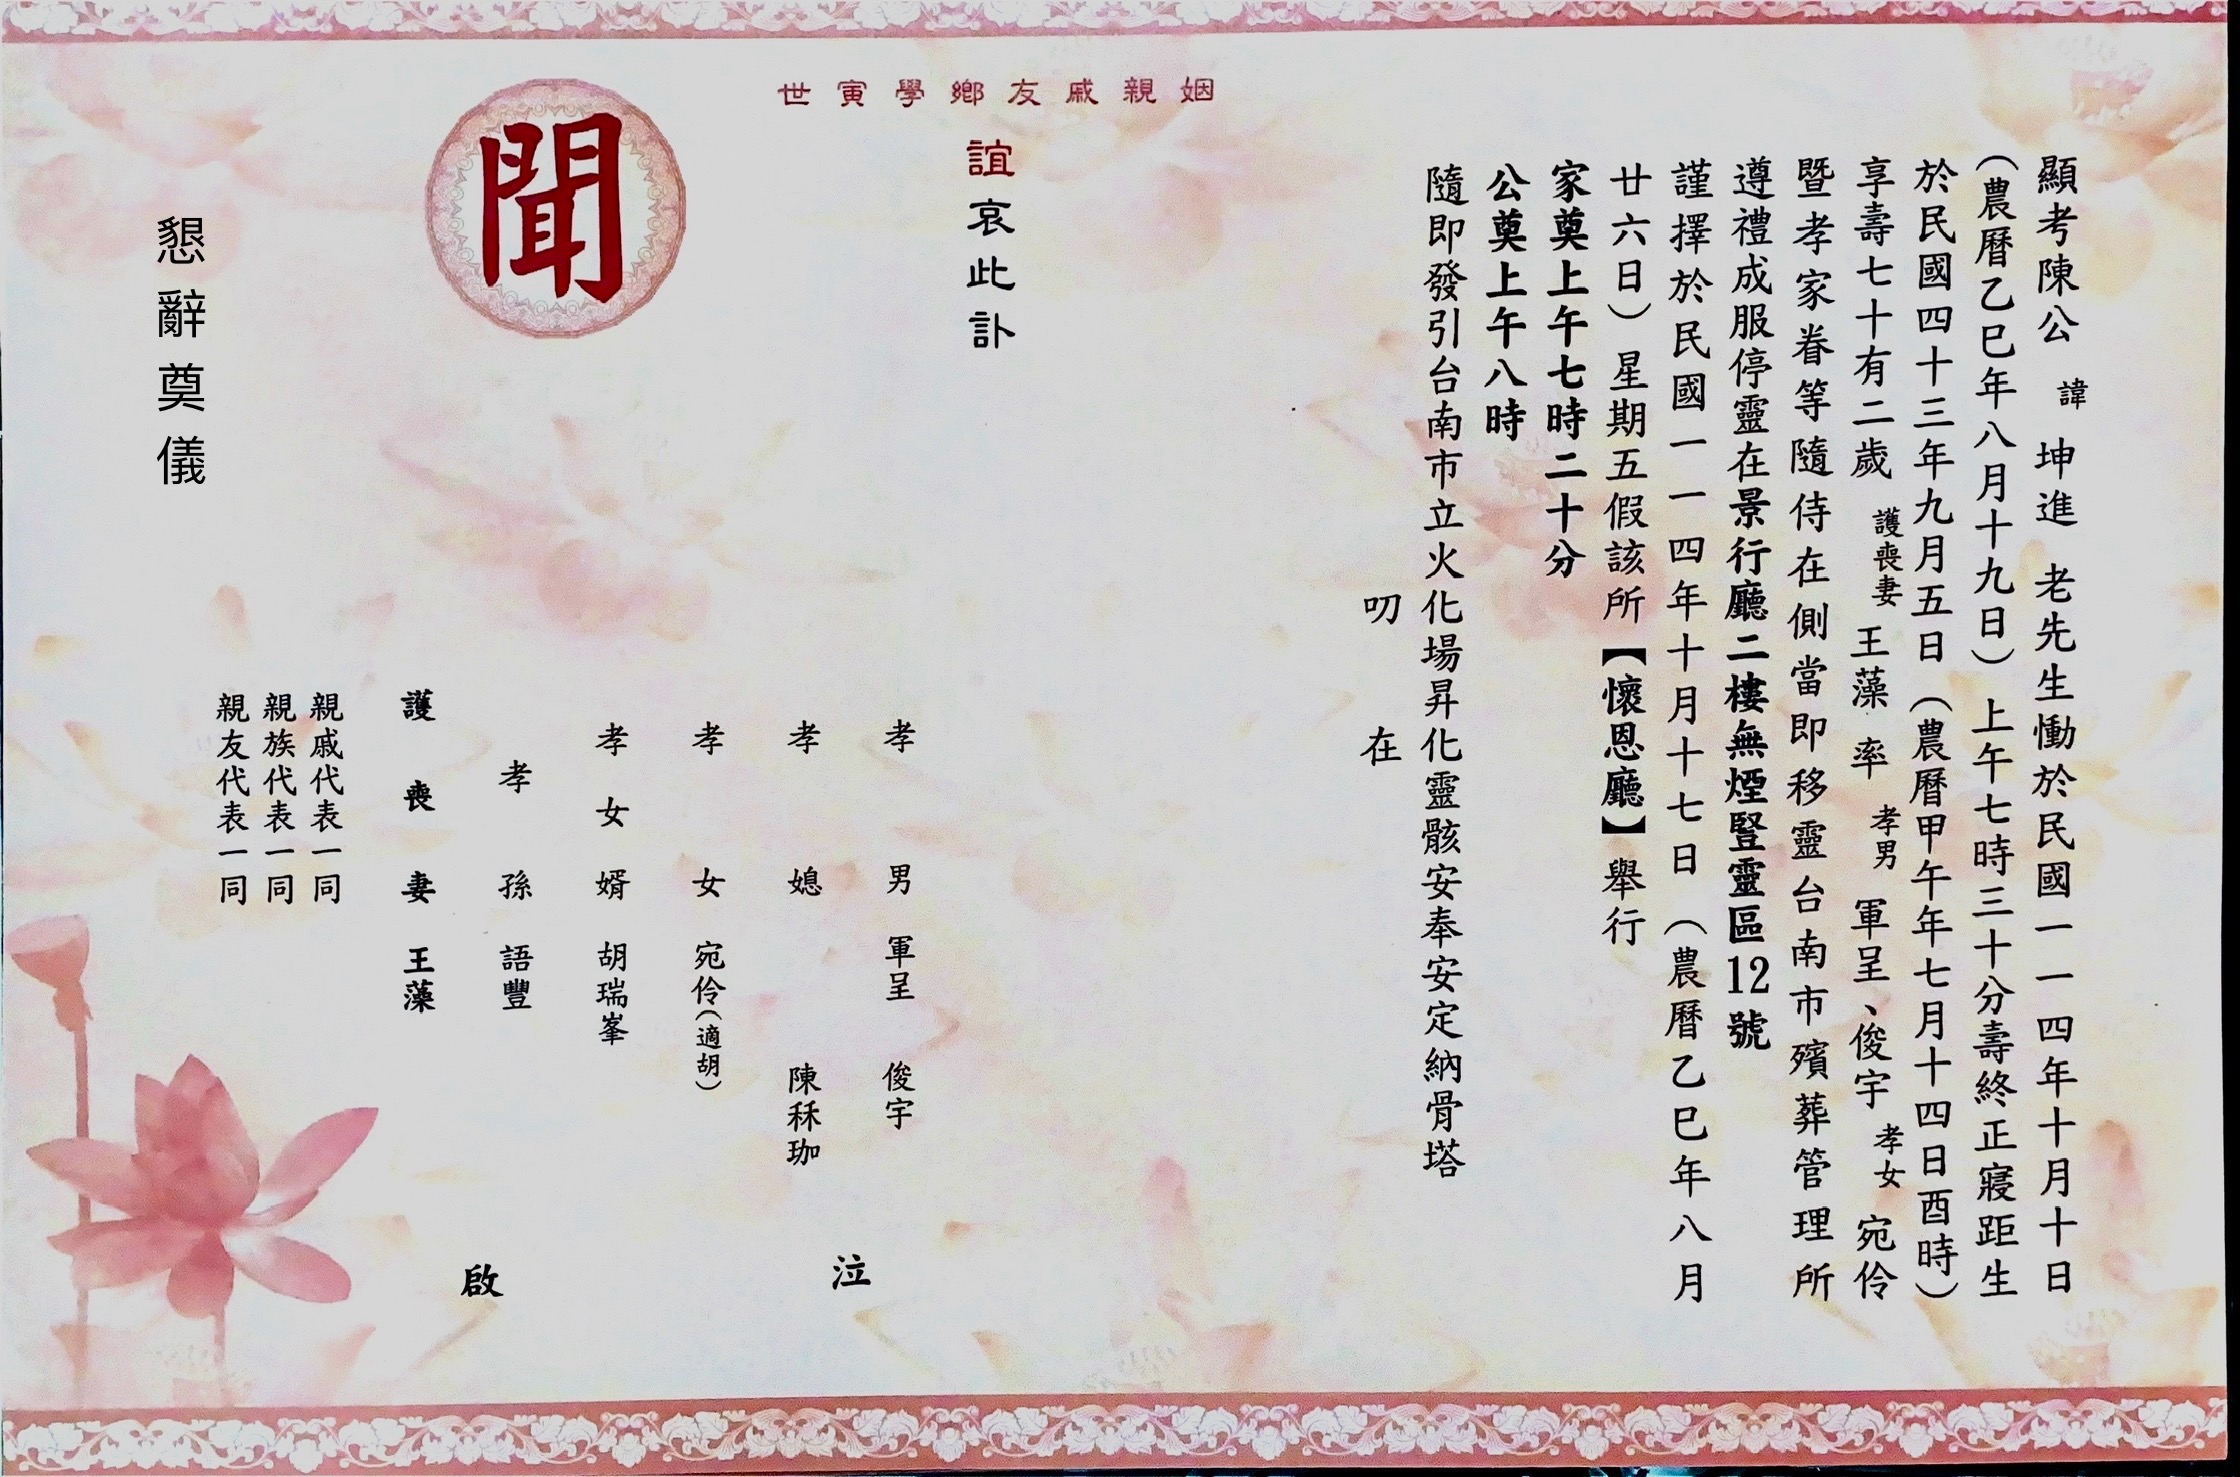 顯考陳公 諱 坤進 老先生慟於民國一一四年十月十日
（農曆乙巳年八月十九日）上午七時三十分壽終正寢距生
於民國四十三年九月五日（農曆甲午年七月十四日酉時）
享壽七十有二歲 護喪妻 王藻 率 孝男 軍呈、俊宇 孝女 宛伶
暨孝家眷等隨侍在側當即移靈台南市殯葬管理所
遵禮成服停靈在景行廳二樓無煙豎靈區12號
謹擇於民國一一四年十月十七日（農曆乙巳年八月
廿六日）星期五假該所【懷恩廳】舉行
家奠上午七時二十分
公奠上午八時
隨即發引台南市立火化場昇化靈骸安奉安定納骨塔
叨 在
姻親戚友鄉學寅世
誼哀此訃
聞
孝男 軍呈 俊宇
孝媳 陳秝珈
泣
孝女 宛伶（適胡）
孝女婿 胡瑞峯
孝孫 語豐
啟
護喪妻 王藻
親戚代表一同
親族代表一同
親友代表一同
懇辭奠儀